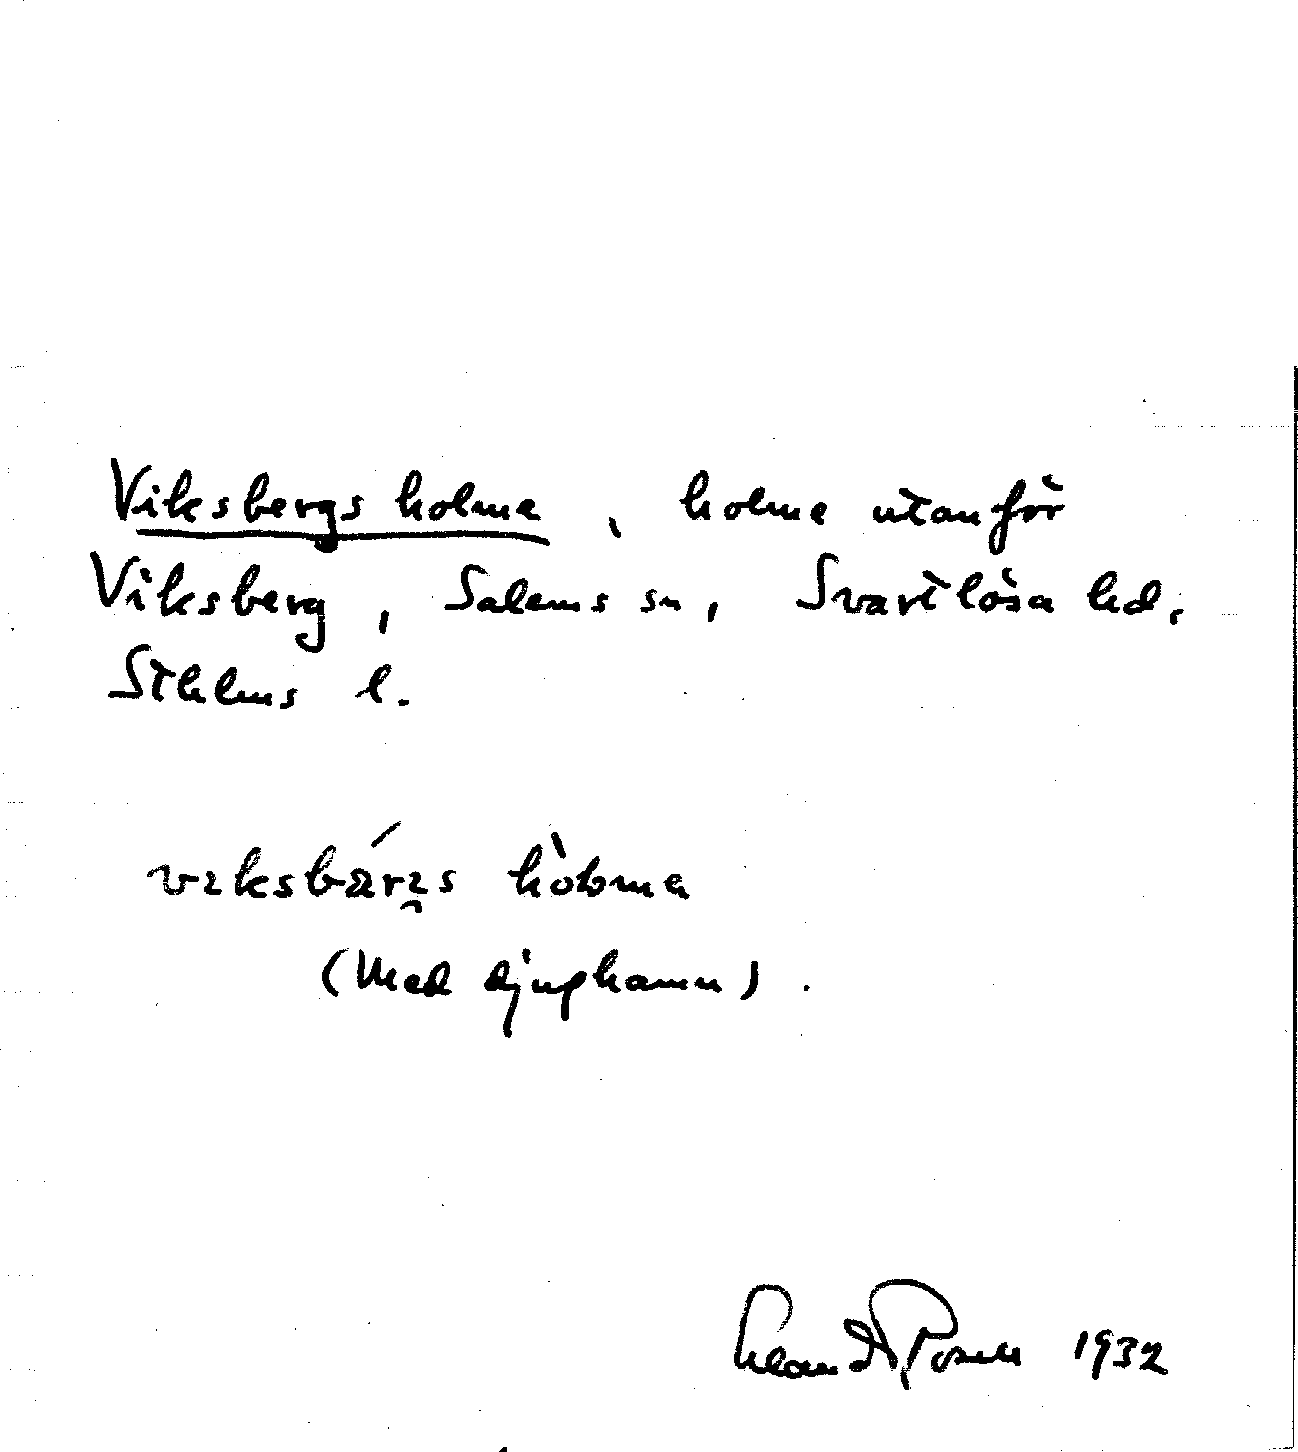 Viksbergs holme, holme utanför
Viksberg, Salems sn, Svartlösa hd,
Sthlms l.
(Med djuphamn).
1932